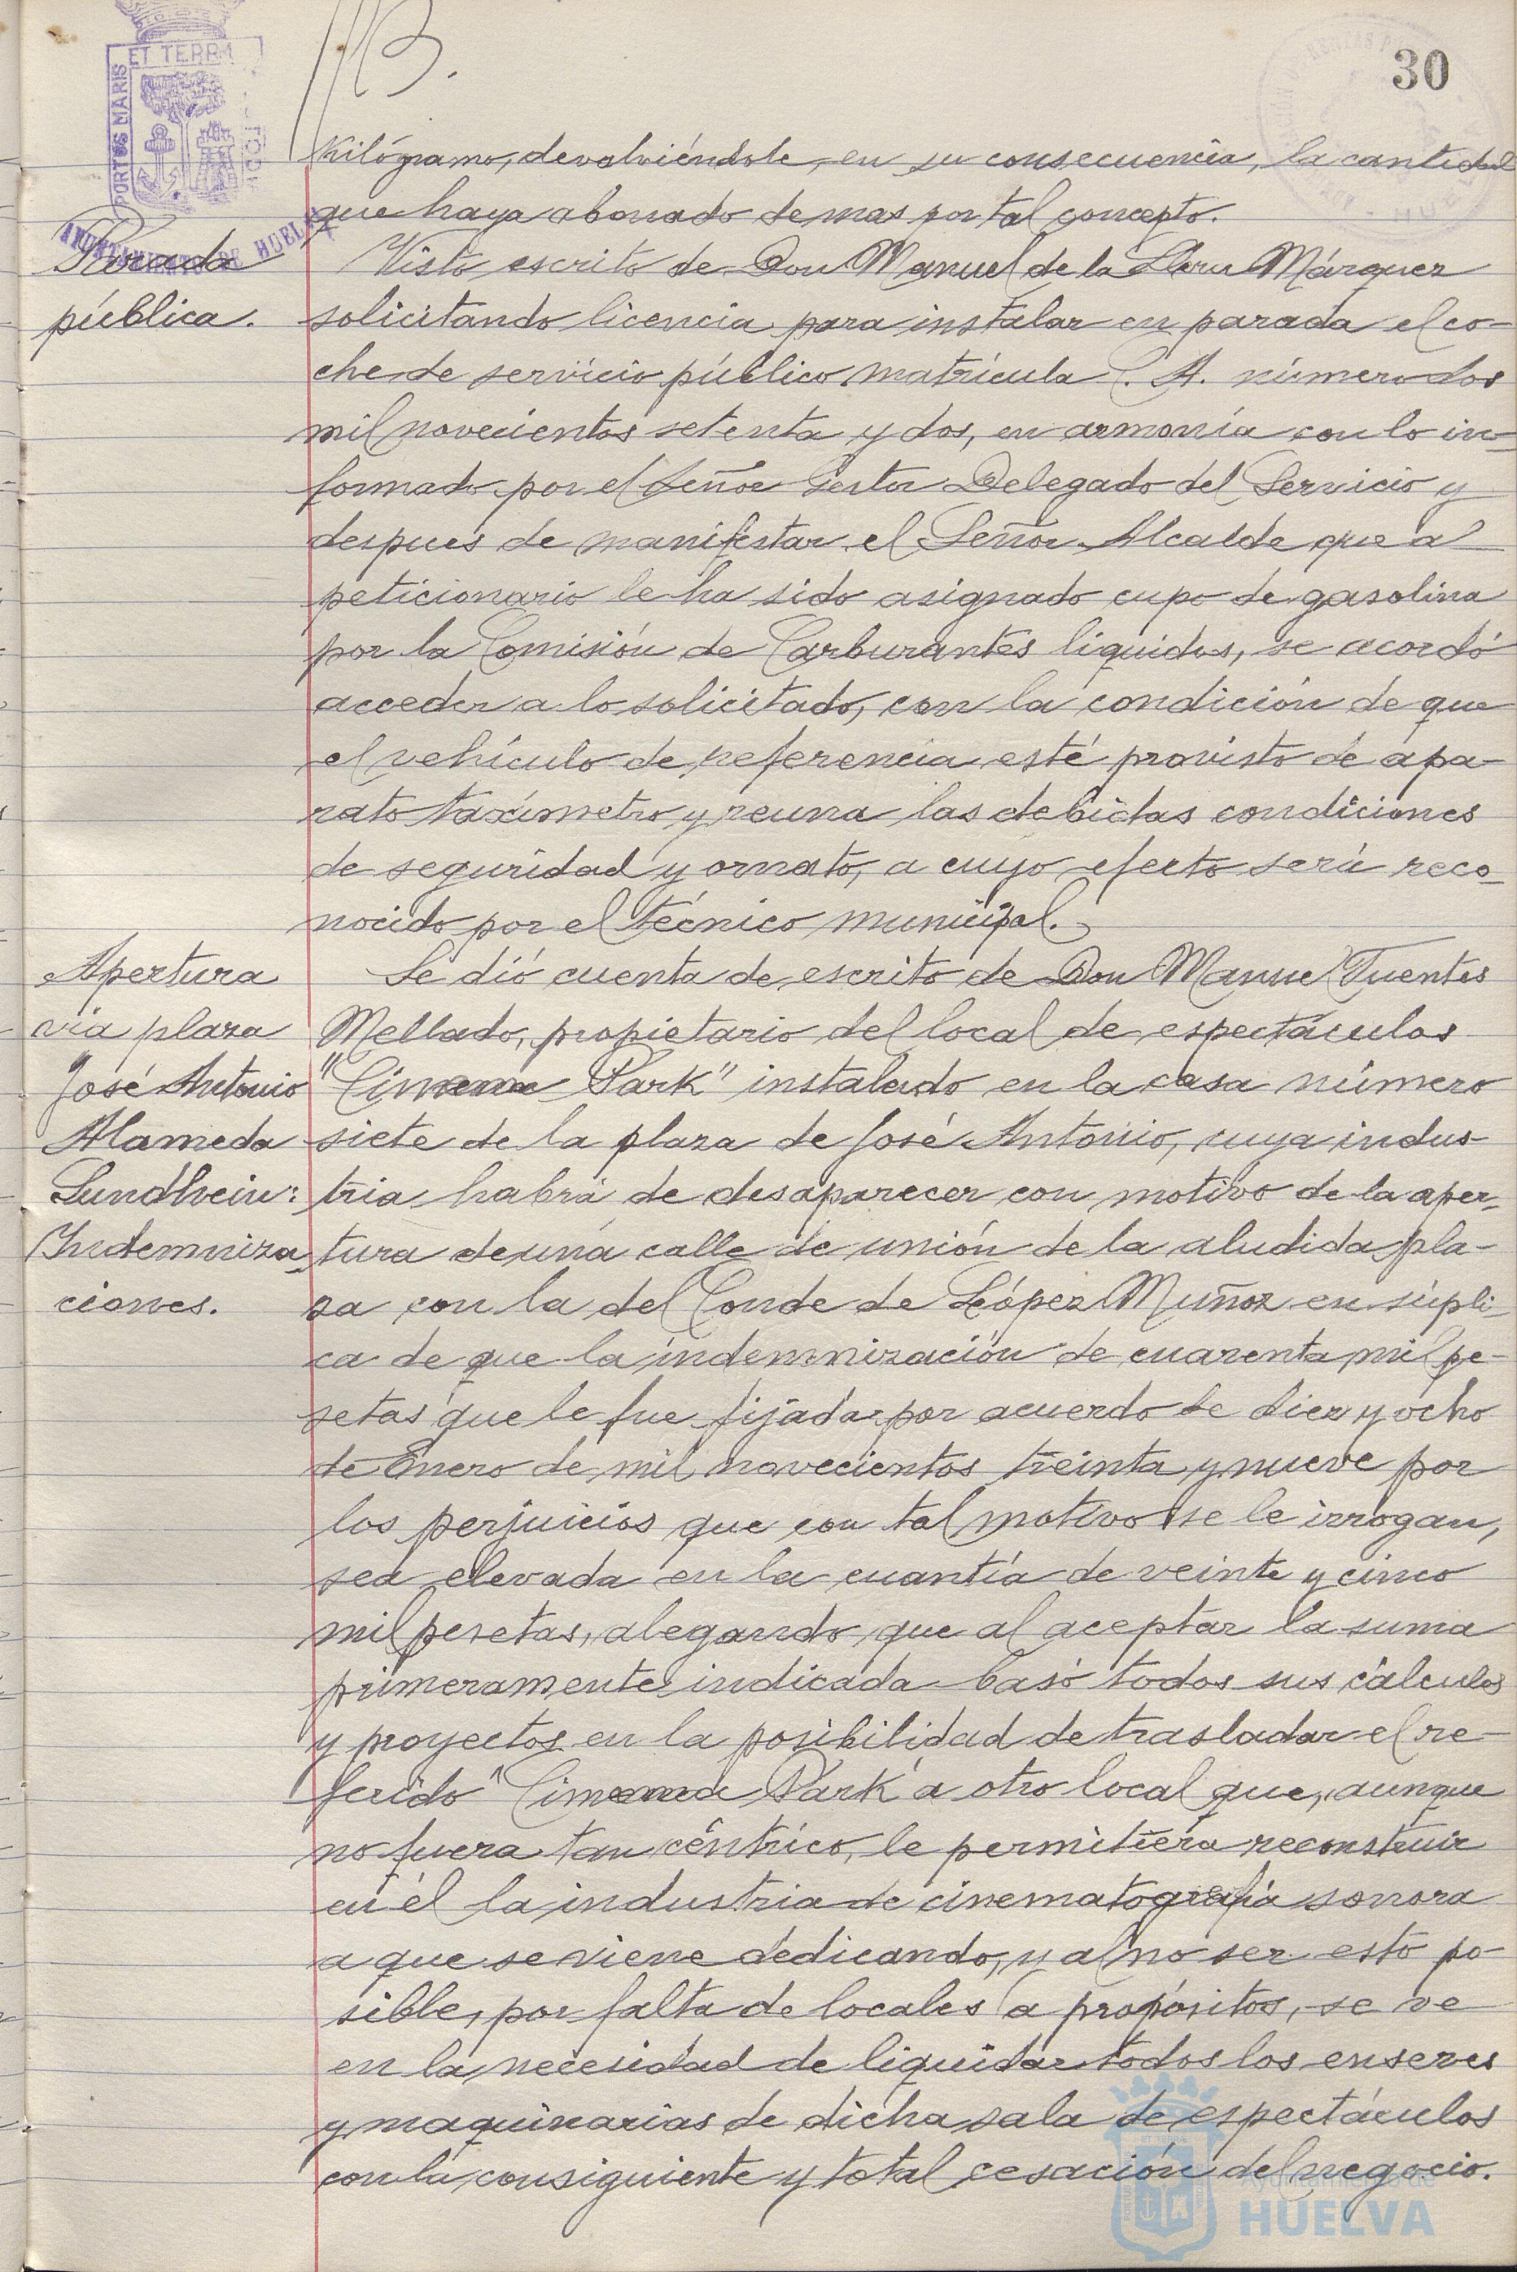 30
ET TERRA
PORTUS MARIS
AYUNTAMIENTO DE HUELVA
kilógramo, devolviéndole, en su consecuencia, la cantidad
que haya abonado demas por tal concepto.
Parada
pública.
Visto escrito de Don Manuel de la Márquez
solicitando licencia para instalar en parada el co-
che de servicio público matrícula C. A. número dos
mil novecientos setenta y dos, en armonía con lo in-
formado por el Señor Gestor Delegado del Servicio y
despues de manifestar el Señor Alcalde que a
peticionario le ha sido asignado cupo de gasolina
por la Comisión de Carburantes liquidos, se acordó
acceder a lo solicitado, con la condición de que
el vehículo de referencia esté provisto de apa-
rato taxímetro y reuna las debidas condiciones
de seguridad y ornato, a cuyo efecto será reco-
nocido por el técnico municipal.
Apertura
via plaza
José Antonio
Alameda
Sundheim:
Indemniza-
ciones.
Se dió cuenta de escrito de Don Manuel Fuentes
Mellado, propietario del local de espectáculos
"Cinema Park" instalado en la casa número
siete de la plaza de José Antonio, cuya indus-
tria habrá de desaparecer con motivo de la aper-
tura de una calle de unión de la aludida pla-
za con la del Conde de López Muñoz en súpli-
ca de que la indemnización de cuarenta mil pe-
setas que le fue fijada por acuerdo de diez y ocho
de Enero de mil novecientos treinta y nueve por
los perjuicios que con tal motivo se le irrogan,
sea elevada en la cuantía de veinte y cinco
mil pesetas, alegando que al aceptar la suma
primeramente indicada basó todos sus cálculos
y proyectos en la posibilidad de trasladar el re-
ferido "Cinema Park" a otro local que, aunque
no fuera tan céntrico, le permitiera reconstruir
en él la industria de cinematografía sonora
a que se viene dedicando, y al no ser esto po-
sible, por falta de locales a propósitos, se ve
en la necesidad de liquidar todos los enseres
y maquinarias de dicha sala de espectáculos
con la consiguiente y total cesación del negocio.
Ayuntamiento de
HUELVA